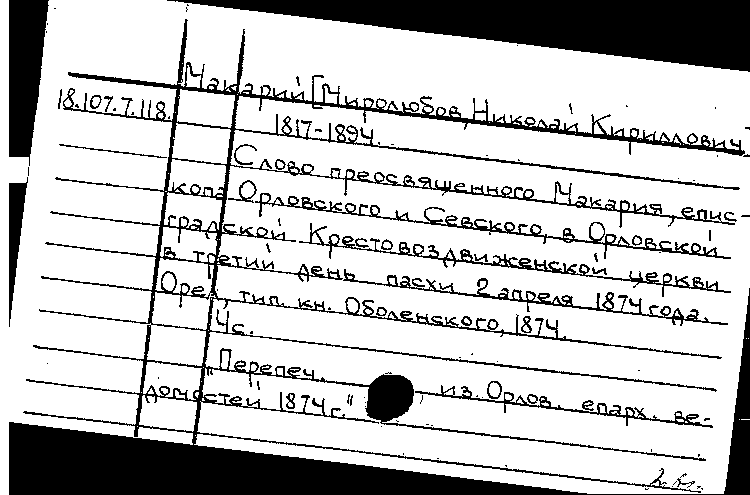 Макарий [Миролюбов, Николай Кириллович]
18.107.7.118.
1817-1894.
Слово преосвященного Макария, епис-
копа Орловского и Севского, в Орловской
градской Крестовоздвиженской церкви
в третий день пасхи 2 апреля 1874 года.
Орел, тип. кн. Оболенского, 1874.
4с.
"Перепеч. из Орлов. епарх. ве-
домостей 1874г."